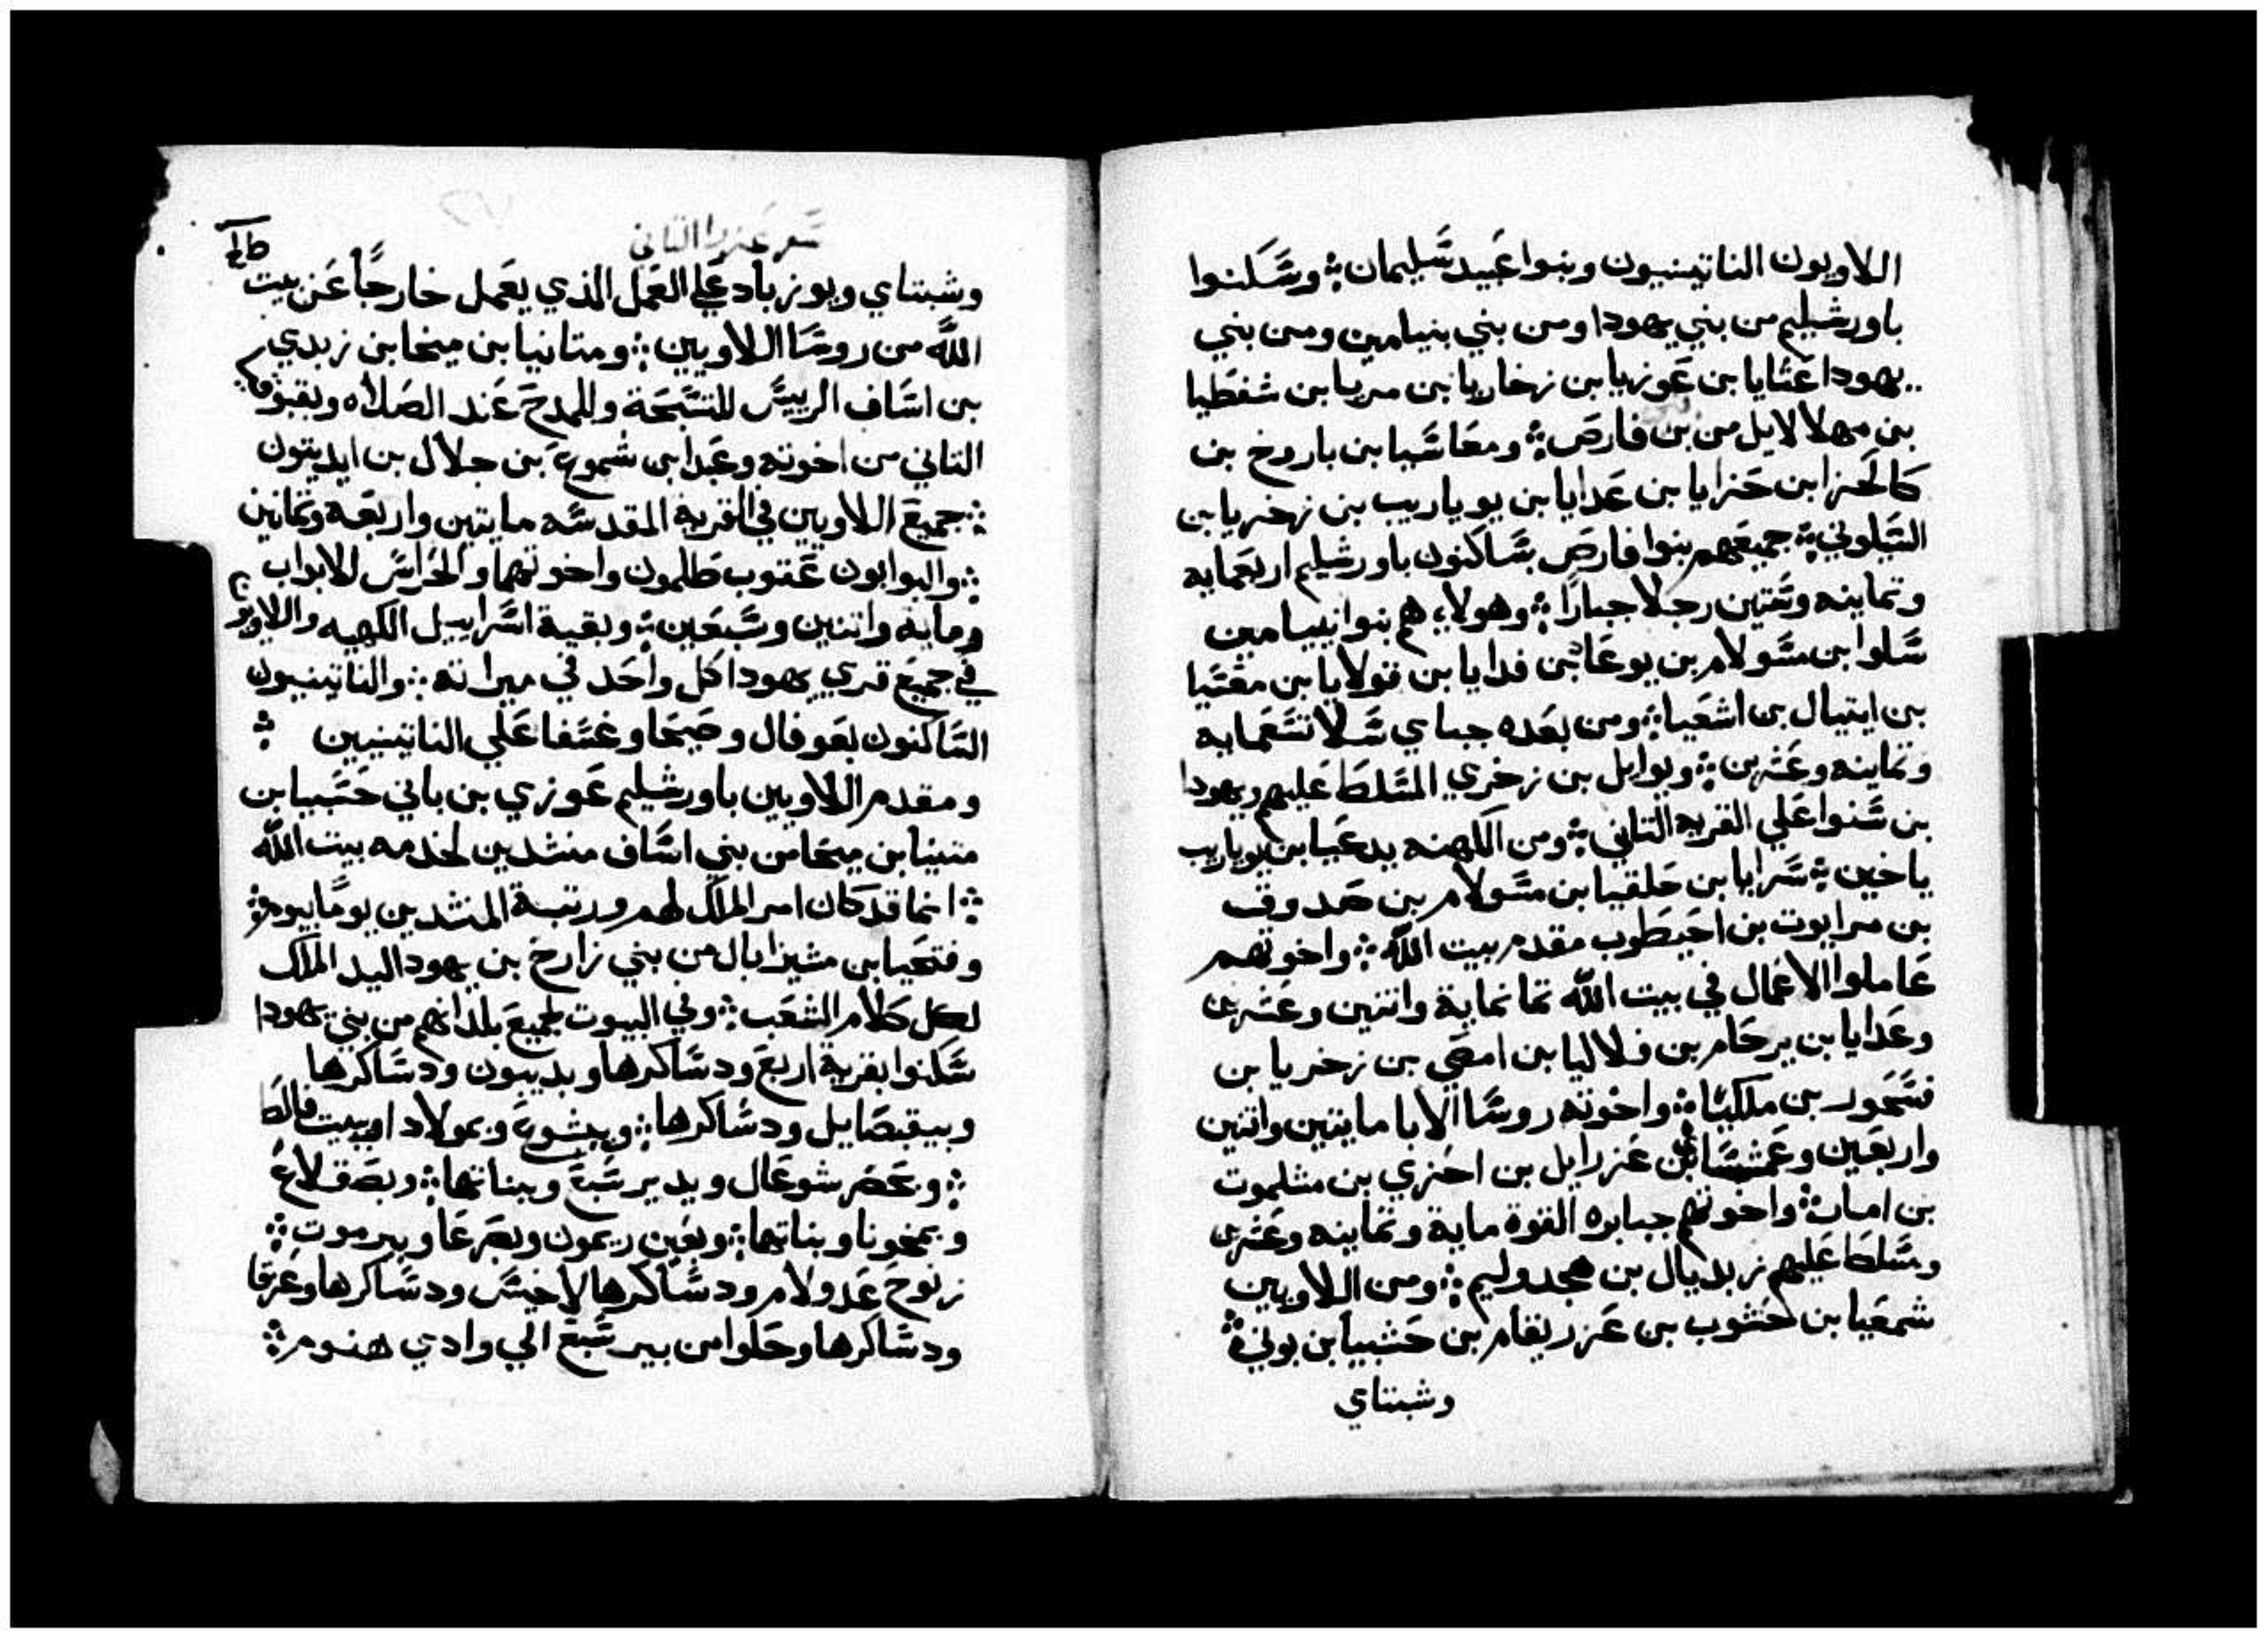 اللاويون الناتينيون وبنوا عبيد سليمان؞ وسكنوا
باورشليم من بني يهودا ومن بني بنيامين ومن بني
يهودا عثايا بن عوزيا بن زخاريا بن مريا بن شفطيا
بن مهلالايل من بن فارص؞ ومعاسيا بن باروخ بن
كالحزا بن حزايا بن عدايا بن يوياريب بن زخريا بن
السيلوني؞ جميعهم بنوا فارص ساكنون باورشليم اربعمايه
وتماينه وستين رجلا جبارا؞ وهولاء هم بنوا بنيامين
سلوا بن مسولام بن يوعاد بن فدايا بن قولايا بن معسيا
بن ايتيال بن اشعيا؞ ومن بعده جباي سلا تسعمايه
وتماينه وعشرين؞ ويوايل بن زخري المسلط عليهم ويهودا
بن سنوا علي القريه التاني؞ ومن الكهنه يدعيا بن يوياريب
ياخين؞ سرايا بن حلقيا بن مسولام بن صدوق
بن مرايوت بن احيطوب مقدم بيت الله؞ واخوتهم
عاملوا الاعمال في بيت الله تمانماية واتنين وعشرين
وعدايا بن يرحام بن فلاليا بن امصي بن زخريا بن
فسحور بن ملكيا؞ واخوته روسا الابا مايتين واتنين
واربعين وعمشساي بن عزرايل بن احزي بن مشلموت
بن امات؞ واخوتهم جبابره القوة ماية وتماينه وعشرين
وسلط عليهم زبديال بن هجدوليم؞ ومن اللاويين
شمعيا بن حشوب بن عزريقام بن حشبيا بن بوني؞
وشبتاي
سفر عزرا التاني
وشبتاي ويوزباد علي العمل الذي يعمل خارجا عن بيت
الله من روسا اللاويين؞ ومتانيا بن ميخا بن زبدي
بن اساف الرييس للتسبحة وللمدح عند الصلاه وبقبوقيا
التاني من اخوته وعبدا بن شموع بن جلال بن ايديتون
؞جميع اللاويين في القرية المقدسه مايتين واربعه وتمانين
؞والبوابون عقوب طلمون واخوتهما والحراس للابواب
وماية واتنين وسبعين؞ وبقية اسراييل الكهنه واللاويون
في جميع قري يهودا كل واحد في ميراته؞ والناتينيون
الساكنون بعوفال وصيحا وغسفا علي الناتينيين ؞
ومقدم اللاويين باورشليم عوزي بن باني حسبيا بن
متنيا بن ميخا من بني اساف منشدين لخدمه بيت الله
؞انما قد كان امر الملك لهم ورتبة المنشدين يوما بيوم؞
وفتحيا بن مشيزابال من بني زارح بن يهودا اليد الملك
لكل كلام الشعب؞ وفي البيوت لجميع بلدانهم من بني يهودا
سكنوا بقرية اربع ودساكرها وبديبون ودساكرها
وبيقبصايل ودساكرها؞ وبيشوع وبمولادا وبيت فالط
؞وبحصر شوعال وببير سبع وبناتها؞ وبصقلاغ
وبمخونا وبناتها؞ وبعين ريمون وبصرعا وبيرموت؞
زنوح عدولام ودساكرها لاخيس ودساكرها وعزقا
ودساكرها وحلوا من بير سبع الي وادي هنوم؞